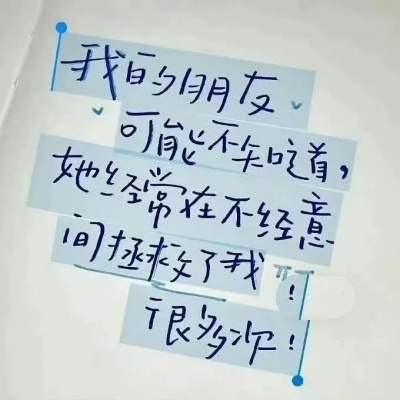 我的朋友
可能不知道,
她经常在不经意
间拯救了我!
很多次!